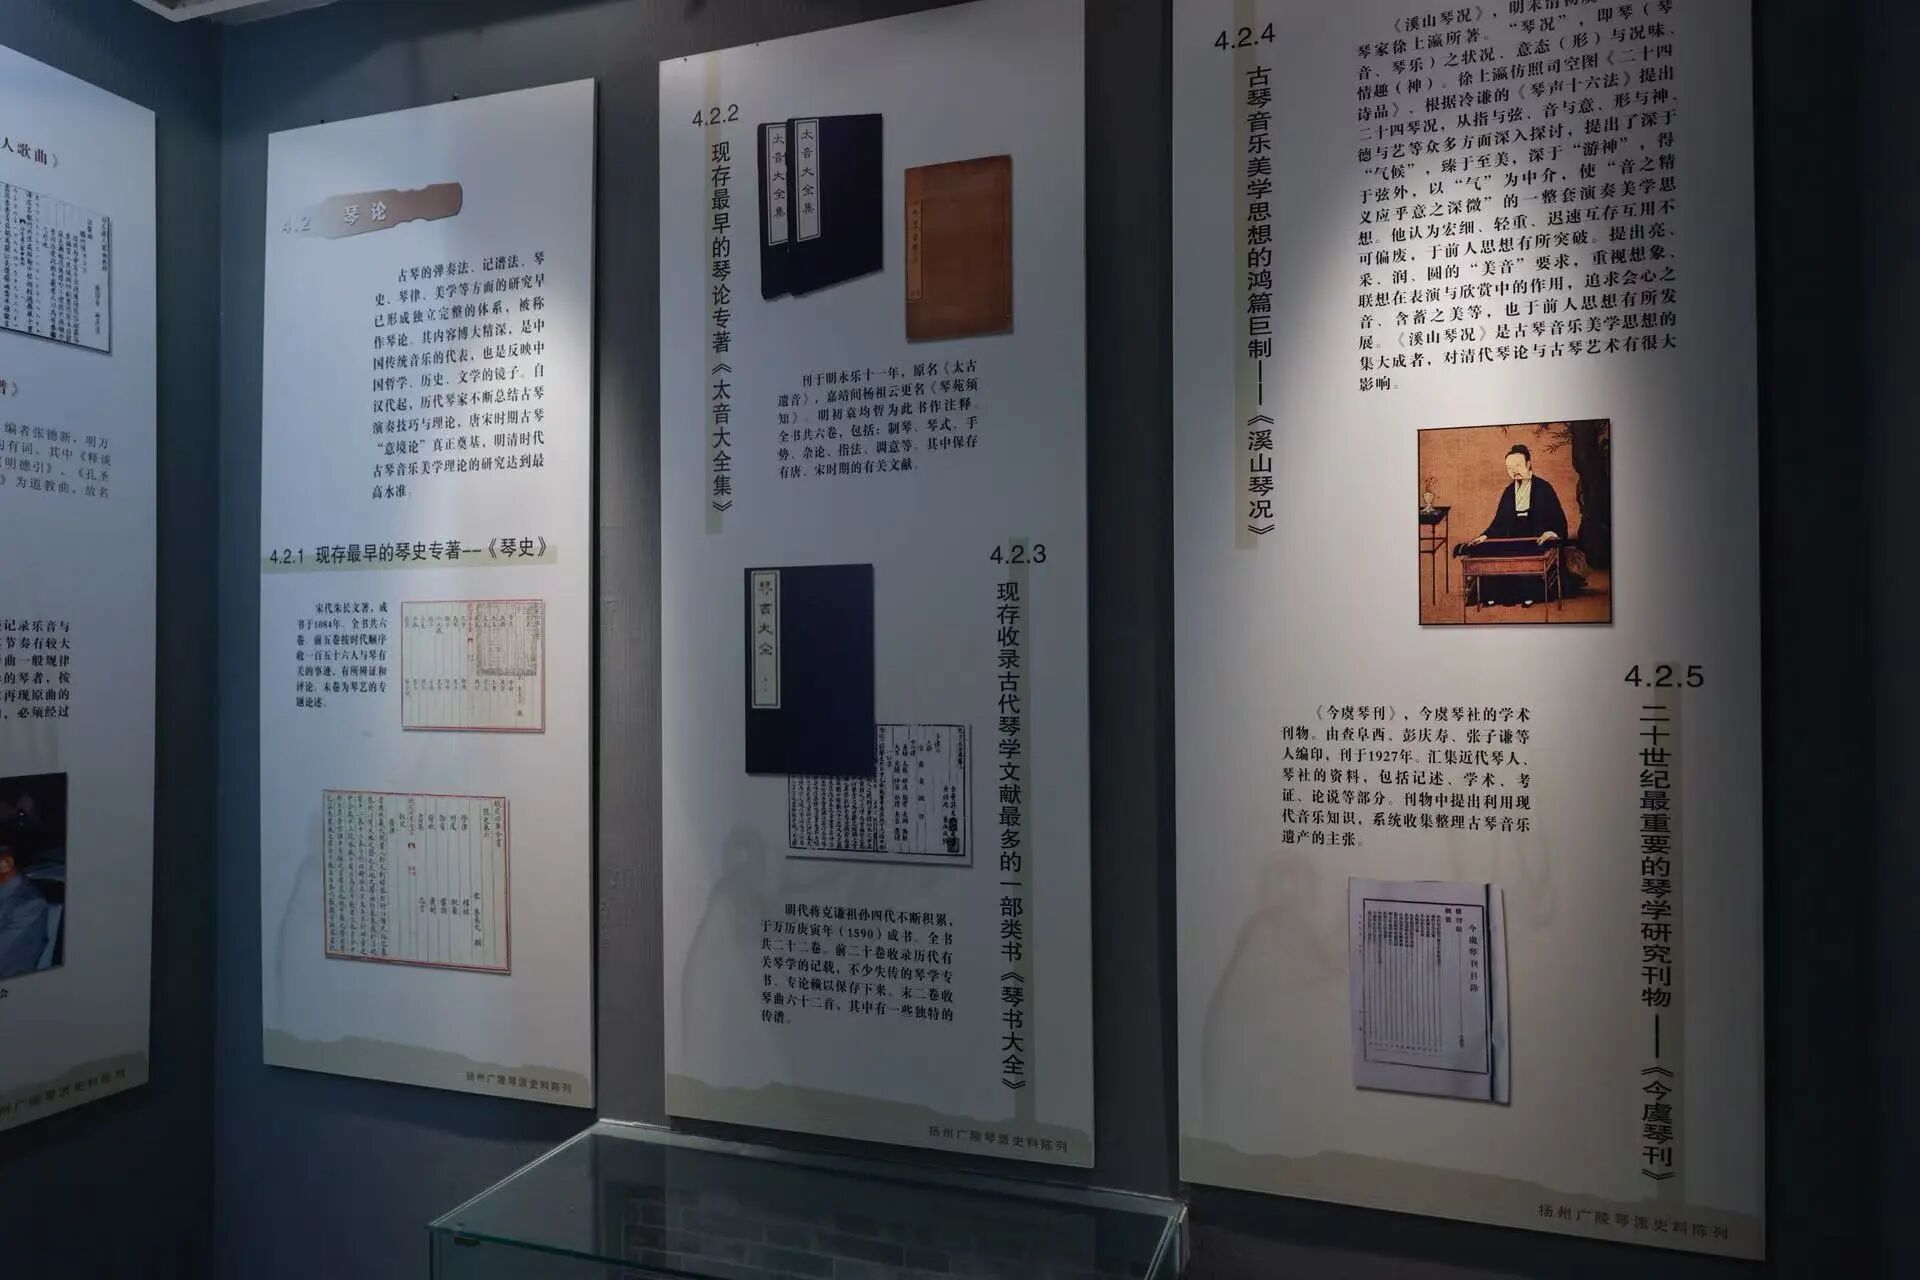 人歌曲》
谱》
编者张德新，明万
均有词、其中《释谈
《明德引》、《孔圣
》为道教曲，故名
记录乐音与
其节奏有较大
曲一般规律
的琴者，按
再现原曲的
，必须经过
会
扬州广陵琴派史料陈列
4.2 琴论
古琴的弹奏法、记谱法、琴
史、琴律、美学等方面的研究早
已形成独立完整的体系，被称
作琴论。其内容博大精深，是中
国传统音乐的代表，也是反映中
国哲学、历史、文学的镜子。自
汉代起，历代琴家不断总结古琴
演奏技巧与理论，唐宋时期古琴
“意境论”真正奠基，明清时代
古琴音乐美学理论的研究达到最
高水准。
4.2.1 现存最早的琴史专著--《琴史》
宋代朱长文著，成
书于1084年。全书共六
卷，前五卷按时代顺序
收一百五十六人与琴有
关的事迹，有所辨证和
评论。末卷为琴艺的专
题论述。
扬州广陵琴派史料陈列
4.2.2
现存最早的琴论专著《太音大全集》
太音大全集
太音大全集
刊于明永乐十一年，原名《太古
遗音》，嘉靖间杨祖云更名《琴苑须
知》。明初袁均哲为此书作注释。
全书共六卷，包括：制琴、琴式、手
势、杂论、指法、调意等。其中保存
有唐、宋时期的有关文献。
4.2.3
现存收录古代琴学文献最多的一部类书《琴书大全》
琴书大全
明代蒋克谦祖孙四代不断积累，
于万历庚寅年（1590）成书。全书
共二十二卷。前二十卷收录历代有
关琴学的记载，不少失传的琴学专
书、专论赖以保存下来。末二卷收
琴曲六十二首，其中有一些独特的
传谱。
扬州广陵琴派史料陈列
4.2.4
古琴音乐美学思想的鸿篇巨制——《溪山琴况》
《溪山琴况》，明末清初
琴家徐上瀛所著。“琴况”，即琴（琴
音、琴乐）之状况、意态（形）与况味、
情趣（神）。徐上瀛仿照司空图《二十四
诗品》、根据冷谦的《琴声十六法》提出
二十四琴况，从指与弦、音与意、形与神、
德与艺等众多方面深入探讨，提出了深于
“气候”，臻于至美，深于“游神”，得
于弦外，以“气”为中介，使“音之精
义应乎意之深微”的一整套演奏美学思
想。他认为宏细、轻重、迟速互存互用不
可偏废，于前人思想有所突破。提出亮、
采、润、圆的“美音”要求，重视想象、
联想在表演与欣赏中的作用，追求会心之
音、含蓄之美等，也于前人思想有所发
展。《溪山琴况》是古琴音乐美学思想的
集大成者，对清代琴论与古琴艺术有很大
影响。
4.2.5
二十世纪最重要的琴学研究刊物——《今虞琴刊》
《今虞琴刊》，今虞琴社的学术
刊物。由查阜西、彭庆寿、张子谦等
人编印，刊于1927年。汇集近代琴人、
琴社的资料，包括记述、学术、考
证、论说等部分。刊物中提出利用现
代音乐知识，系统收集整理古琴音乐
遗产的主张。
今虞琴刊目录
扬州广陵琴派史料陈列